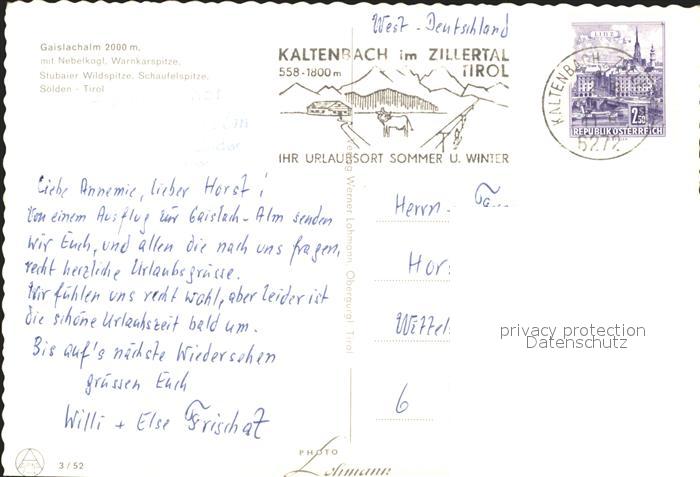 West-Deutschland
Gaislachalm 2000 m,
mit Nebelkogl, Warnkarspitze,
Stubaier Wildspitze, Schaufelspitze,
Sölden - Tirol
KALTENBACH im ZILLERTAL
558-1800 m TIROL
IHR URLAUBSORT SOMMER U. WINTER
KALTENBACH
5272
LINZ
2.50
REPUBLIK ÖSTERREICH
Liebe Annemie, lieber Horst!
Von einem Ausflug zur Gaislach-Alm senden
wir Euch, und allen die nach uns fragen,
recht herzliche Urlaubsgrüsse.
Wir fühlen uns recht wohl, aber leider ist
die schöne Urlaubszeit bald um.
Bis auf's nächste Wiedersehen
grüssen Euch
Willi + Else Frischat
Verlag Werner Lohmann, Obergurgl Tirol
Herrn
Hor
Wittel
6
privacy protection
Datenschutz
3/52
PHOTO
Lohmann